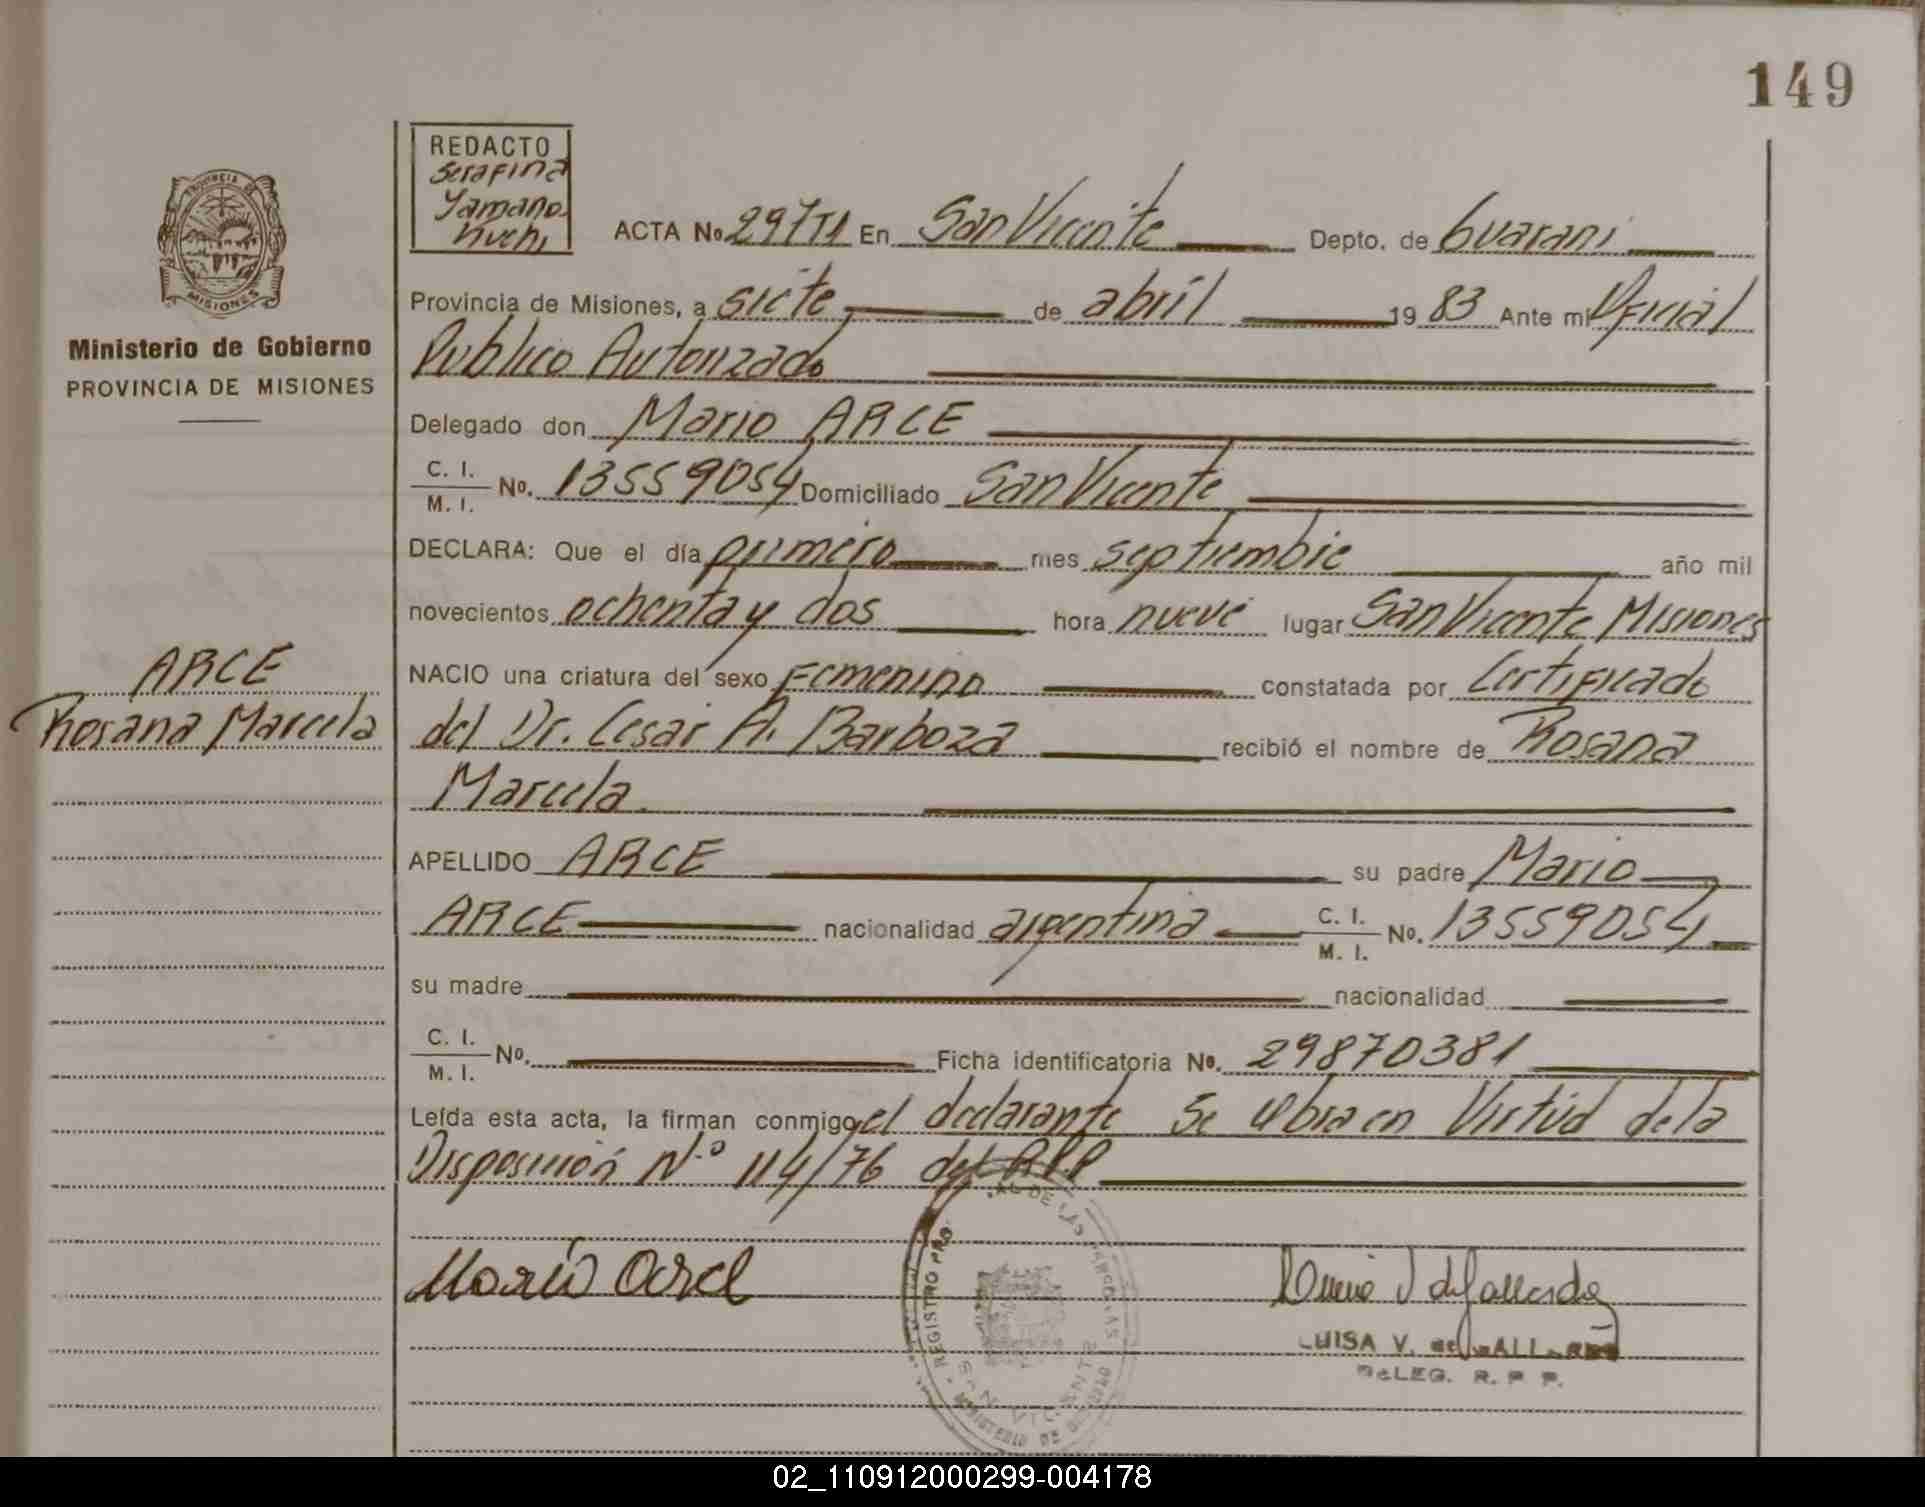 149
REDACTO
Serafina
Yamano
huchi
PROVINCIA DE
MISIONES
Ministerio de Gobierno
PROVINCIA DE MISIONES
ACTA No. En San Vicente Depto. de Guarani
Provincia de Misiones, a siete de abril 1983 Ante mi Oficial
Publico Autorizado
Delegado don Mario ARCE
C. I.
M. I. No. 13559054 Domiciliado San Vicente
DECLARA: Que el día primero mes septiembre año mil
novecientos ochenta y dos hora nueve lugar San Vicente Misiones
ARCE
Rosana Marcela
NACIO una criatura del sexo Femenino constatada por Certificado
del Dr. Cesar A. Barboza recibió el nombre de Rosana
Marcela.
APELLIDO ARCE su padre Mario
ARCE nacionalidad argentina C. I.
M. I. No. 13559054
su madre nacionalidad
C. I.
M. I. No. Ficha identificatoria No. 29870381
Leída esta acta, la firman conmigo el declarante Se labra en Virtud de la
Disposición N.º 114/76 del R.P.P
Mario Arce
REGISTRO
DE LAS PERSONAS
SAN VICENTE
MINISTERIO DE GOBIERNO
LUISA V. de
DELEG. R. P. P.
02_110912000299-004178